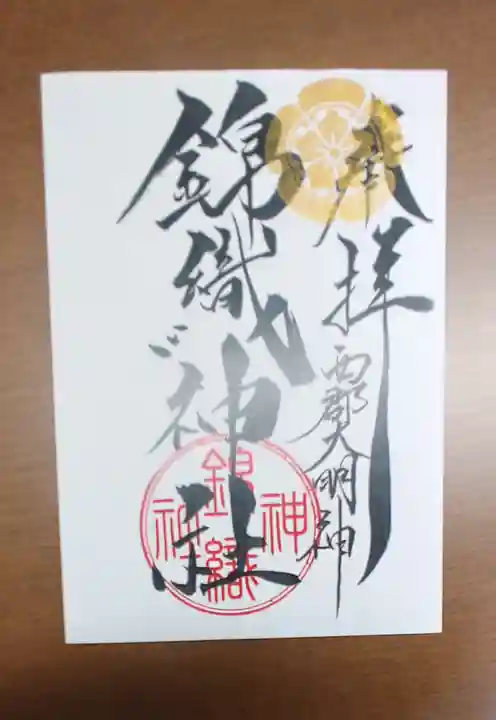 奉拝
西郡大明神
錦織神社
錦織神社